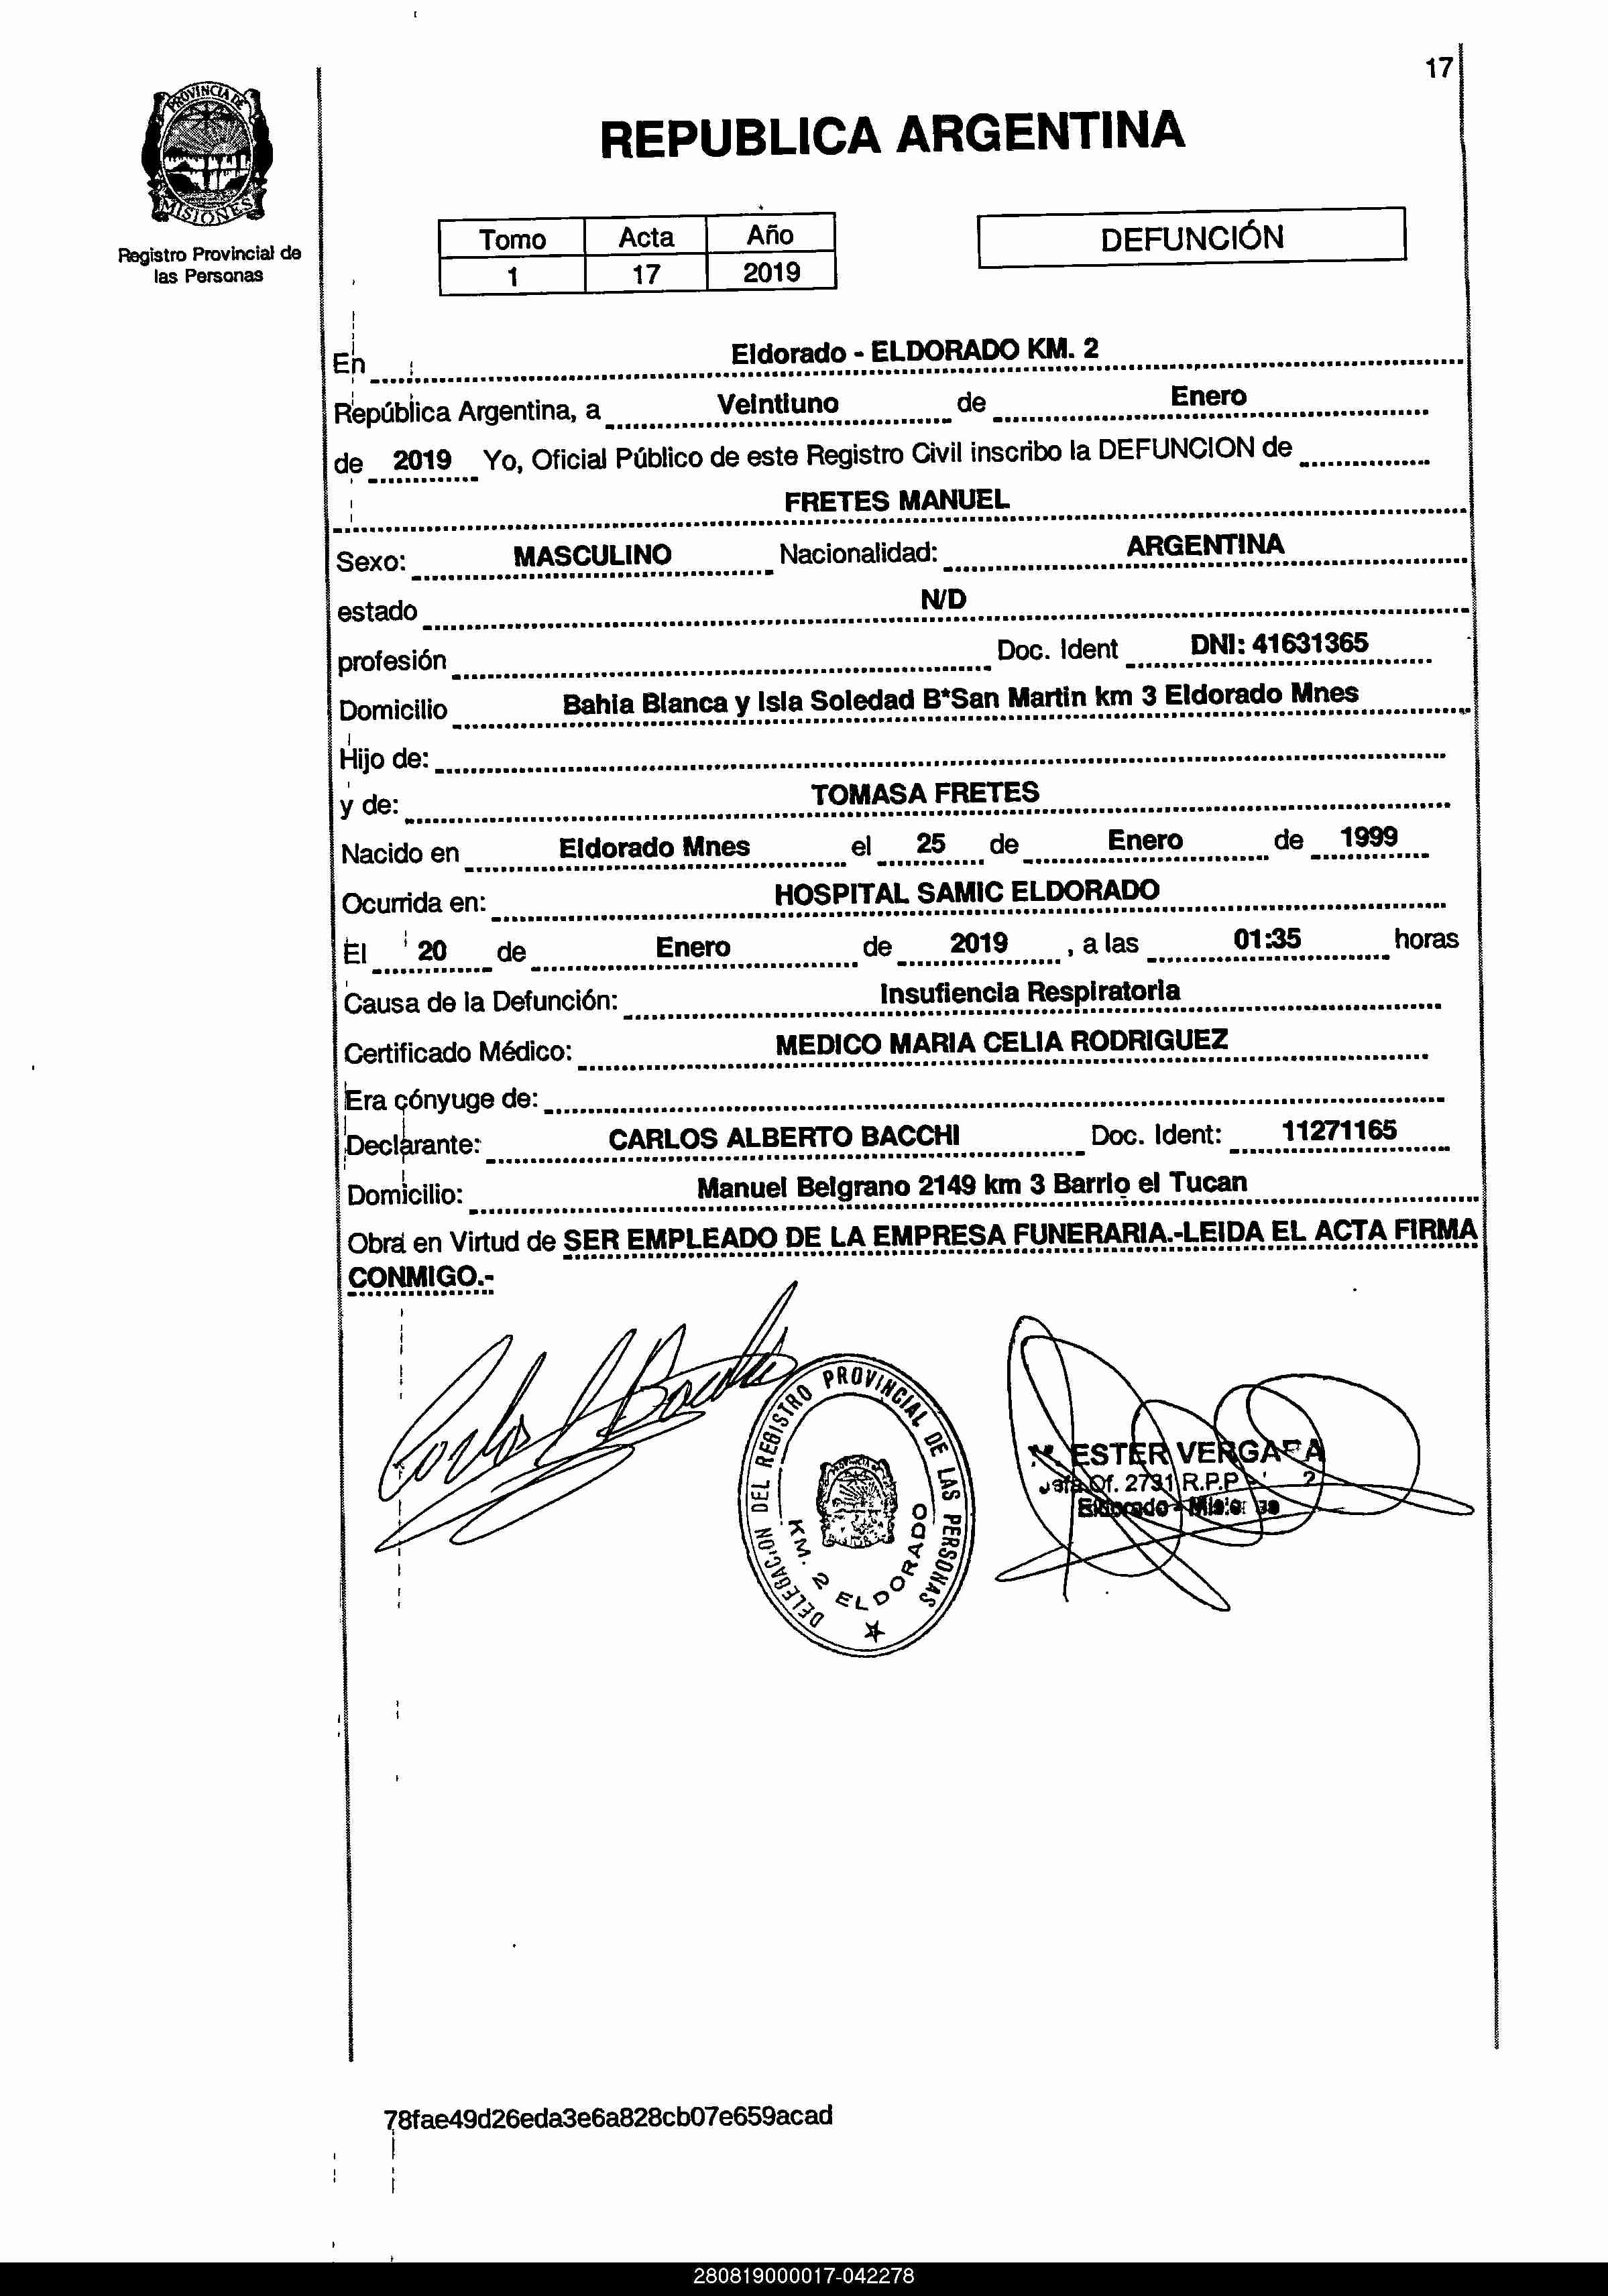 17
PROVINCIA DE
MISIONES
Registro Provincial de
las Personas
REPUBLICA ARGENTINA
Tomo Acta Año
1 17 2019
DEFUNCIÓN
En Eldorado - ELDORADO KM. 2
República Argentina, a Veintiuno de Enero
de 2019 Yo, Oficial Público de este Registro Civil inscribo la DEFUNCION de
FRETES MANUEL
Sexo: MASCULINO Nacionalidad: ARGENTINA
estado N/D
profesión Doc. Ident DNI: 41631365
Domicilio Bahia Blanca y Isla Soledad B*San Martin km 3 Eldorado Mnes
Hijo de:
y de: TOMASA FRETES
Nacido en Eldorado Mnes el 25 de Enero de 1999
Ocurrida en: HOSPITAL SAMIC ELDORADO
El 20 de Enero de 2019 , a las 01:35 horas
Causa de la Defunción: Insufiencia Respiratoria
Certificado Médico: MEDICO MARIA CELIA RODRIGUEZ
Era cónyuge de:
Declarante: CARLOS ALBERTO BACCHI Doc. Ident: 11271165
Domicilio: Manuel Belgrano 2149 km 3 Barrio el Tucan
Obra en Virtud de SER EMPLEADO DE LA EMPRESA FUNERARIA.-LEIDA EL ACTA FIRMA
CONMIGO.-
DELEGACION DEL REGISTRO PROVINCIAL DE LAS PERSONAS
KM. 2 ELDORADO
ESTER VERGARA
Of. 2731 R.P.P.
Eldorado
78fae49d26eda3e6a828cb07e659acad
280819000017-042278